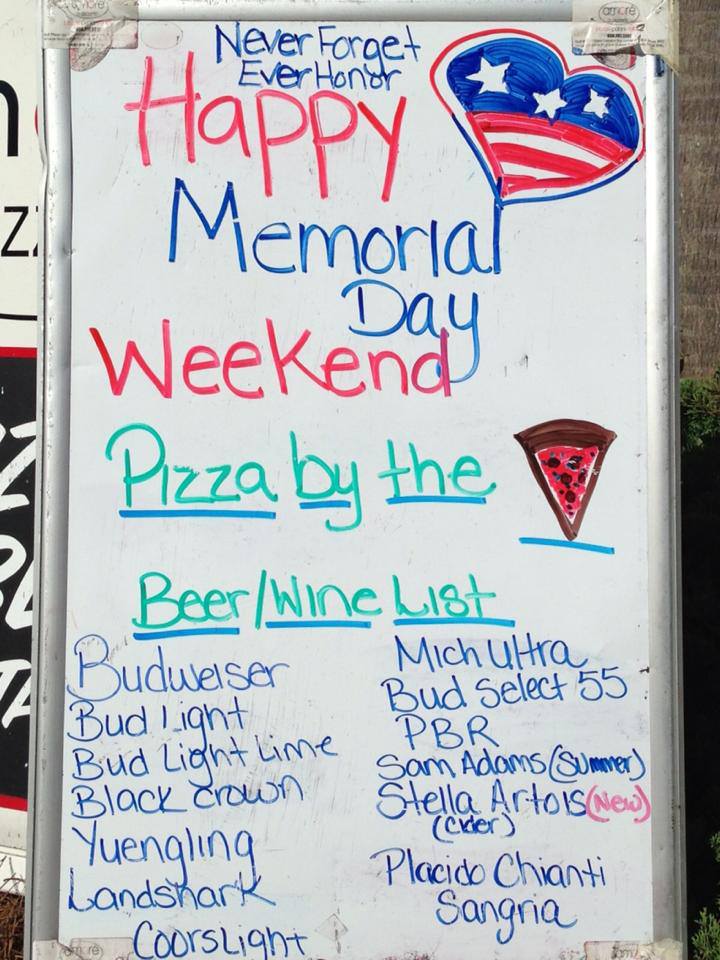 Never Forget
Ever Honor
Happy
Memorial
Day
Weekend
Pizza by the
Beer/Wine List
Budweiser
Bud Light
Bud Light Lime
Black crown
Yuengling
Landshark
Coors Light
Mich Ultra
Bud Select 55
PBR
Sam Adams (Summer)
Stella Artois (New)
(Cider)
Placido Chianti
Sangria
amore
amore